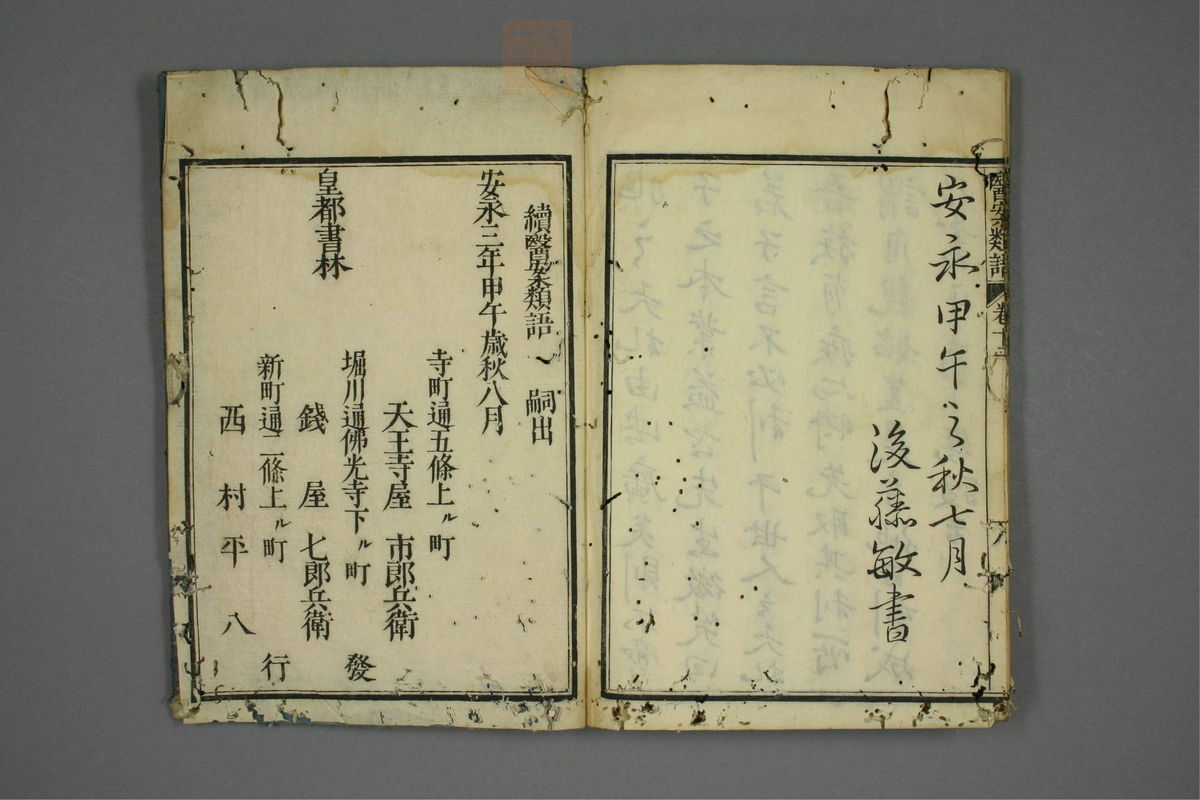 醫案類語
卷十二
安永甲午之秋七月
後藤敏書
續醫案類語 嗣出
安永三年甲午歲秋八月
寺町通五條上ル町
天王寺屋 市郎兵衛
皇都書林
堀川通佛光寺下ル町 發
錢屋 七郎兵衛
新町通二條上ル町 行
西村平八